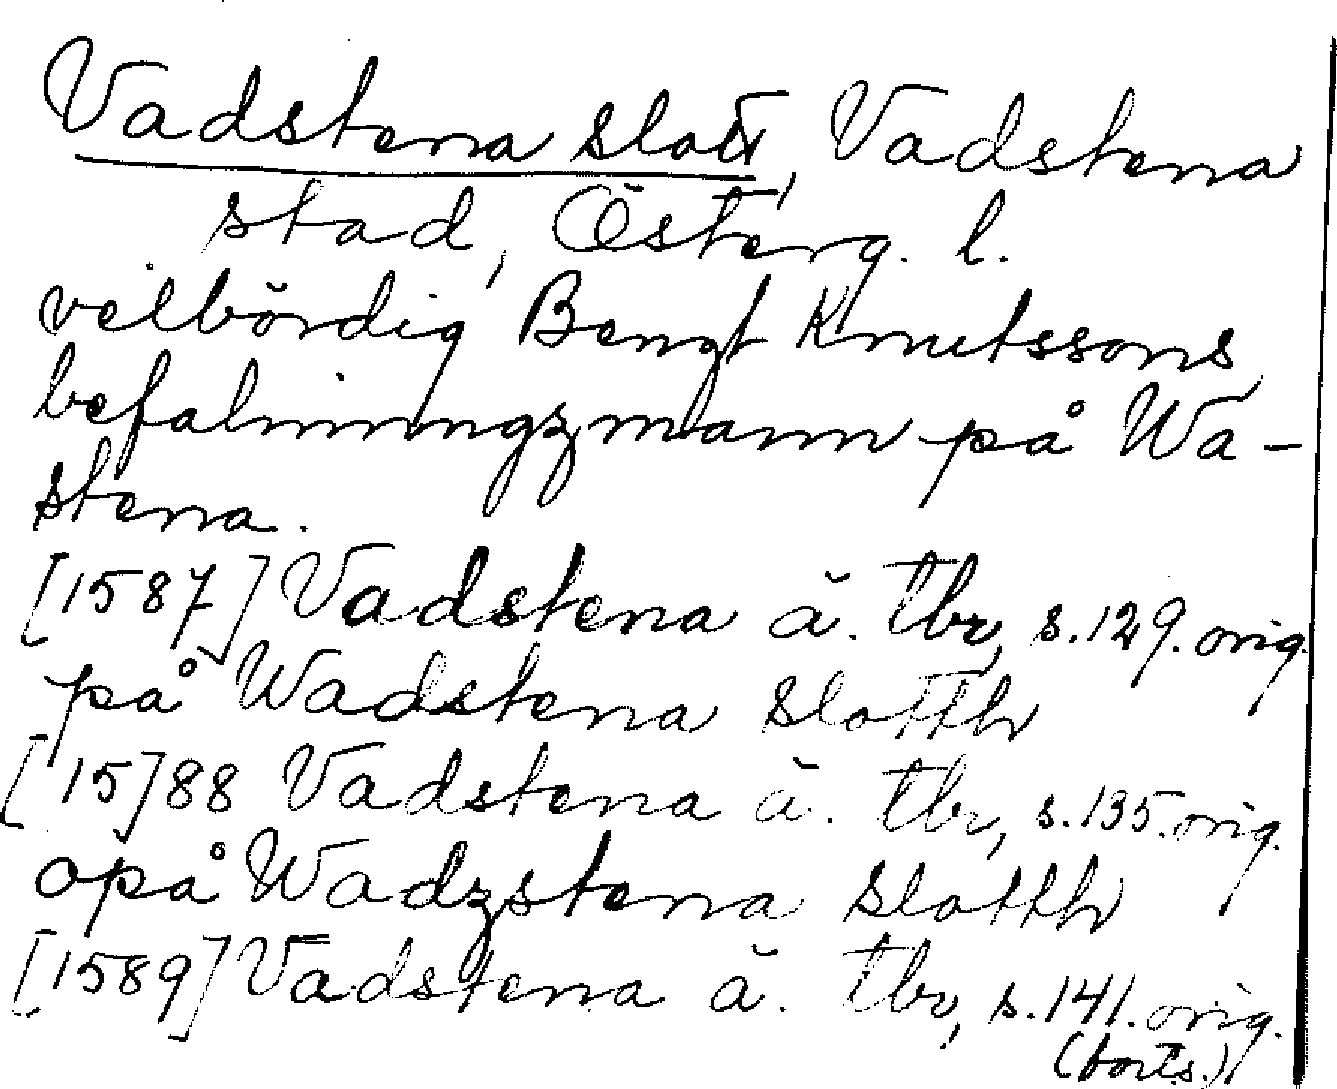 Vadstena slott, Vadstena
stad, Österg. l.
velbördig Bengt Knutssons
befalningzmann på Wa-
stena.
[1587] Vadstena ä. tbr, s. 129. orig.
på Wadstena slotth
[15]88 Vadstena ä. tbr, s. 135. orig.
opå Wadzstena slotth
[1589] Vadstena ä. tbr, s. 141. orig.
(forts.)